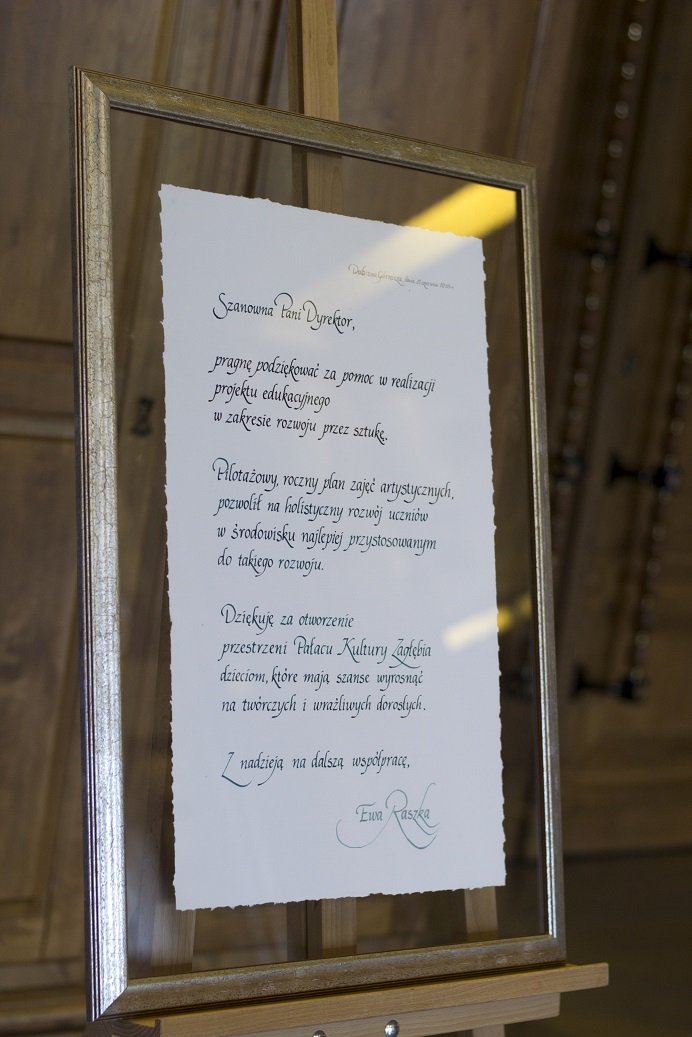 Dąbrowa Górnicza, dnia
Szanowna Pani Dyrektor,
pragnę podziękować za pomoc w realizacji
projektu edukacyjnego
w zakresie rozwoju przez sztukę.
Pilotażowy, roczny plan zajęć artystycznych,
pozwolił na holistyczny rozwój uczniów
w środowisku najlepiej przystosowanym
do takiego rozwoju.
Dziękuję za otworzenie
przestrzeni Pałacu Kultury Zagłębia
dzieciom, które mają szanse wyrosnąć
na twórczych i wrażliwych dorosłych.
Z nadzieją na dalszą współpracę,
Ewa Raszka